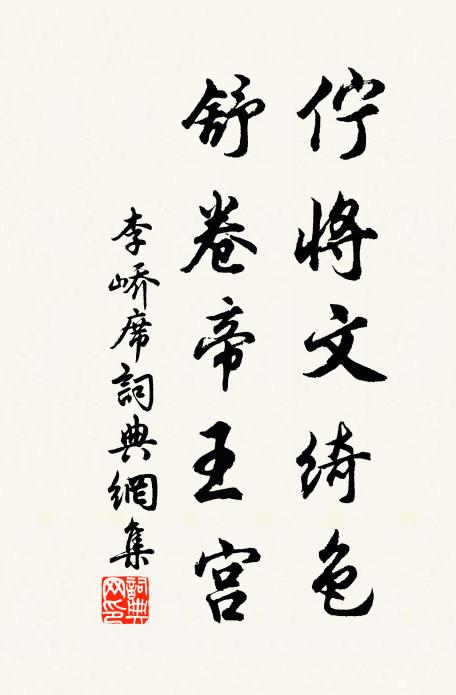 佇將文綺色
舒卷帝王宫
李嶠席詞典網集
詞典
网印